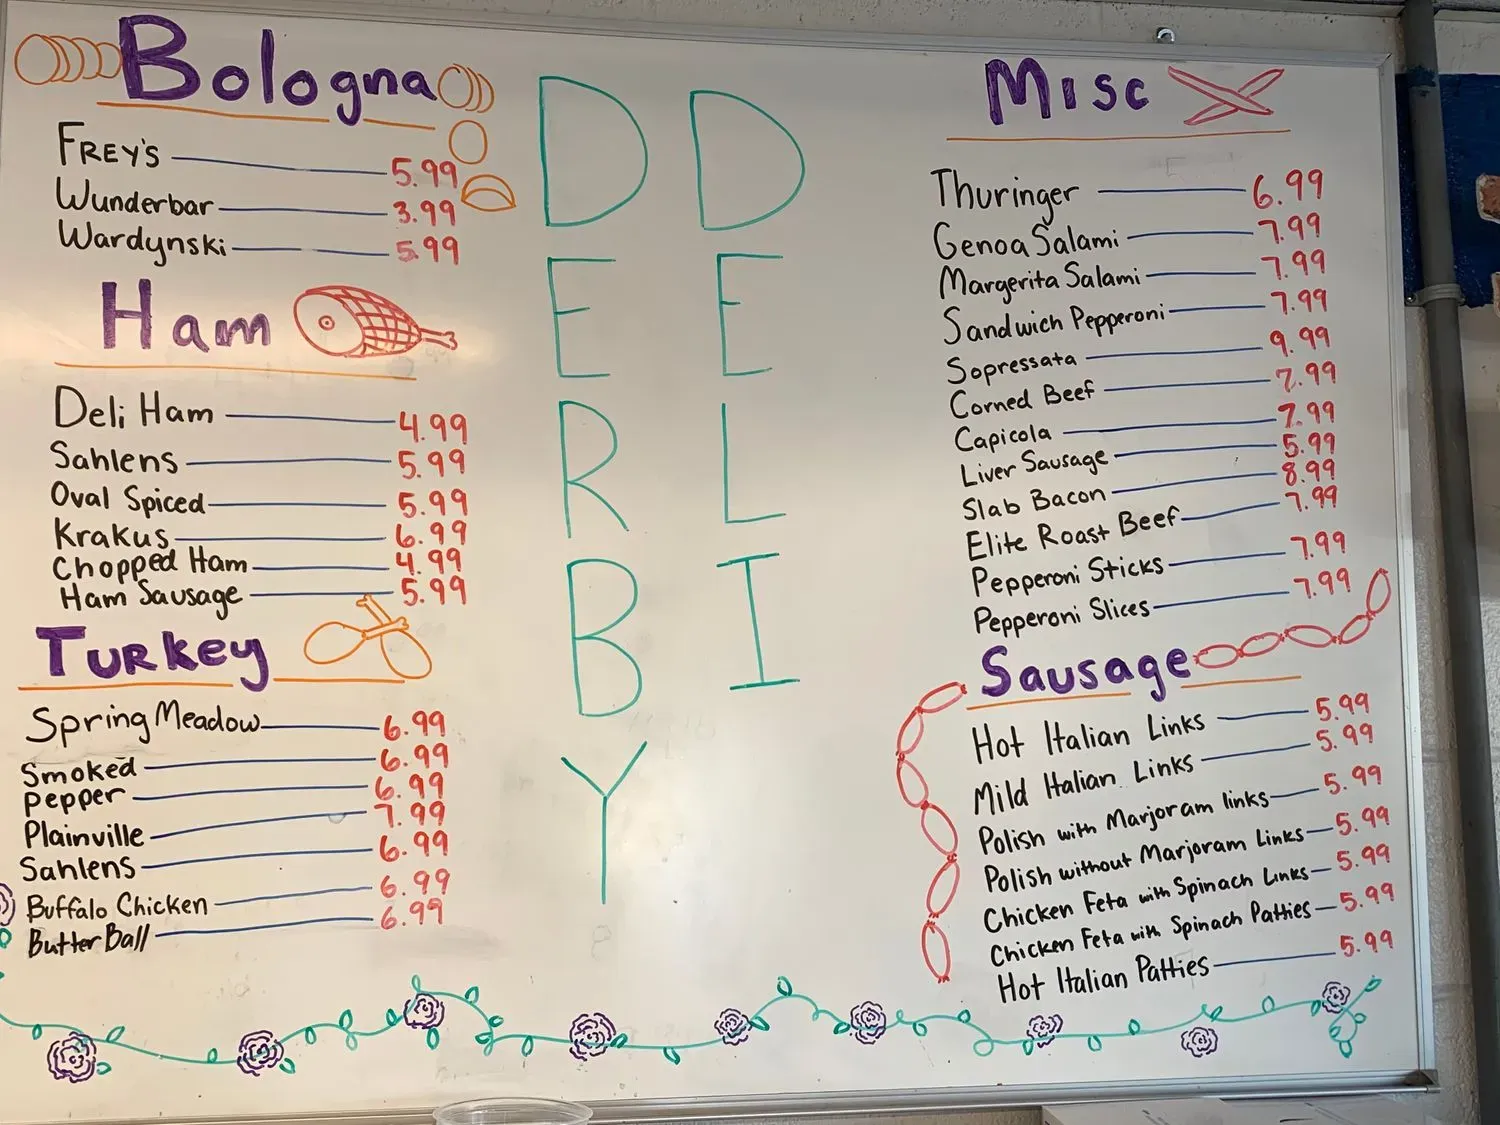 Bologna
FREY'S 5.99
Wunderbar 3.99
Wardynski 5.99
Ham
Deli Ham 4.99
Sahlens 5.99
Oval Spiced 5.99
Krakus 6.99
Chopped Ham 4.99
Ham Sausage 5.99
Turkey
Spring Meadow 6.99
Smoked 6.99
Pepper 6.99
Plainville 7.99
Sahlens 6.99
Buffalo Chicken 6.99
Butter Ball 6.99
DERBY
DELI
Misc
Thuringer 6.99
Genoa Salami 7.99
Margerita Salami 7.99
Sandwich Pepperoni 7.99
Sopressata 9.99
Corned Beef 7.99
Capicola 7.99
Liver Sausage 5.99
Slab Bacon 8.99
Elite Roast Beef 7.99
Pepperoni Sticks 7.99
Pepperoni Slices 7.99
Sausage
Hot Italian Links 5.99
Mild Italian Links 5.99
Polish with Marjoram links 5.99
Polish without Marjoram Links 5.99
Chicken Feta with Spinach Links 5.99
Chicken Feta with Spinach Patties 5.99
Hot Italian Patties 5.99